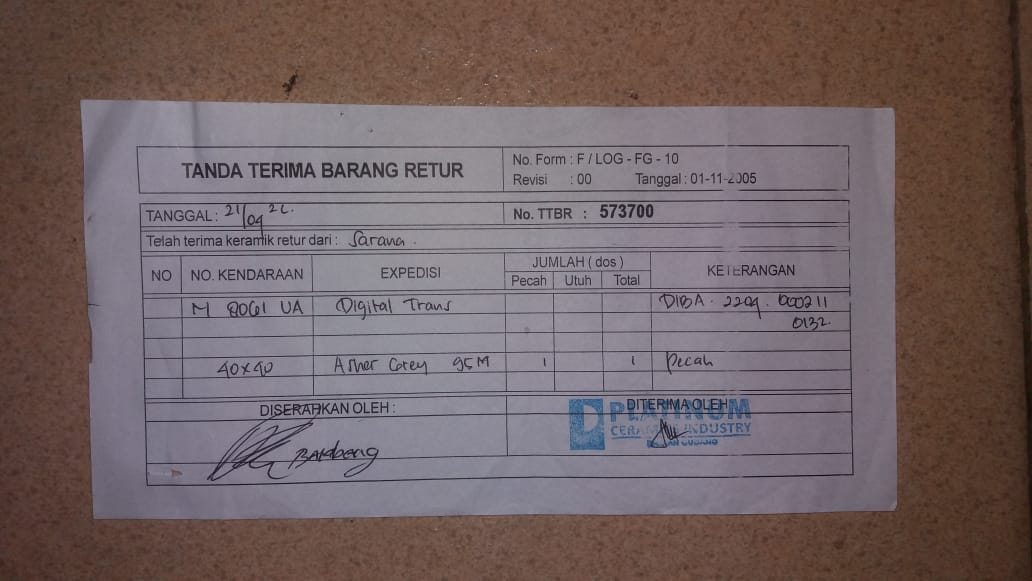 TANDA TERIMA BARANG RETUR
No. Form : F / LOG - FG - 10
Revisi : 00 Tanggal : 01-11-2005
TANGGAL : 21/04 22.
No. TTBR : 573700
Telah terima keramik retur dari : Sarana.
NO NO. KENDARAAN EXPEDISI JUMLAH ( dos ) KETERANGAN
Pecah Utuh Total
M 8061 UA Digital Trans DIBA. 2204. 000211
0132.
40x40 Asher Grey 95M 1 1 Pecah
DISERAHKAN OLEH : DITERIMA OLEH
PLATINUM
CERAMICS INDUSTRY
Bambang